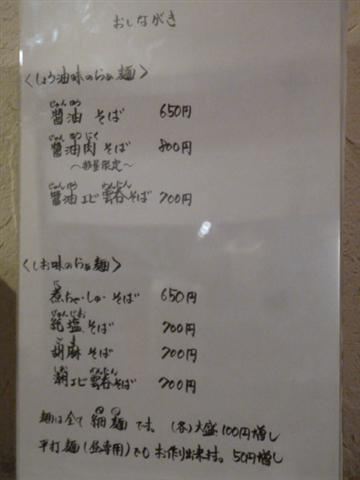 おしながき
〈しょう油味のらぁ麺〉
醤油 そば 650円
醤油肉 そば 800円
〜数量限定〜
醤油エビ雲呑そば 700円
〈しお味のらぁ麺〉
煮ちゃ-しゅ- そば 650円
塩 そば 700円
胡麻 そば 700円
エビ雲呑そば 700円
麺は全て 細麺 です。 (各)大盛 100円増し
平打ち麺(昼専用)でもお作り出来ます。50円増し